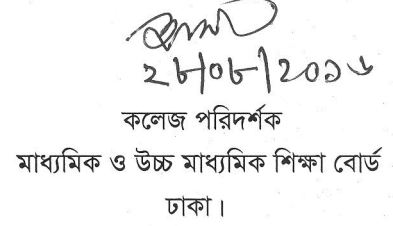 ২৮/০৮/২০১৬
কলেজ পরিদর্শক
মাধ্যমিক ও উচ্চ মাধ্যমিক শিক্ষা বোর্ড
ঢাকা।